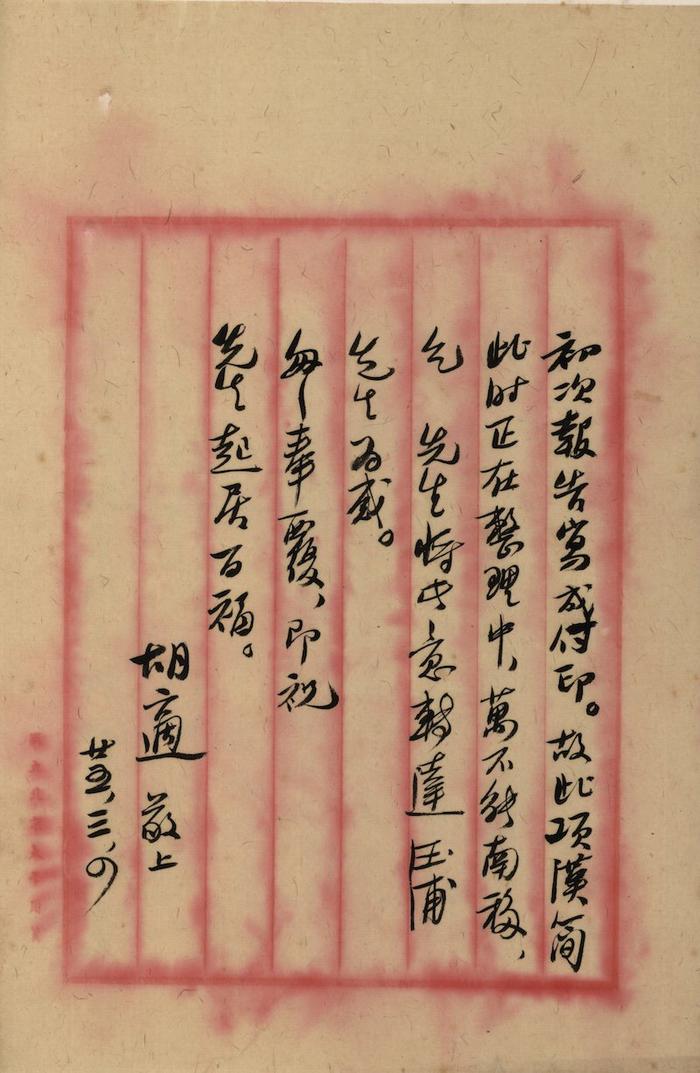 初次報告寫成付印。故此項漢簡
此时正在整理中，萬不能南移，
乞　先生將此意轉達玉甫
先生為感。
匆匆奉覆，即祝
先生起居百福。
胡適　敬上
廿五，三，四